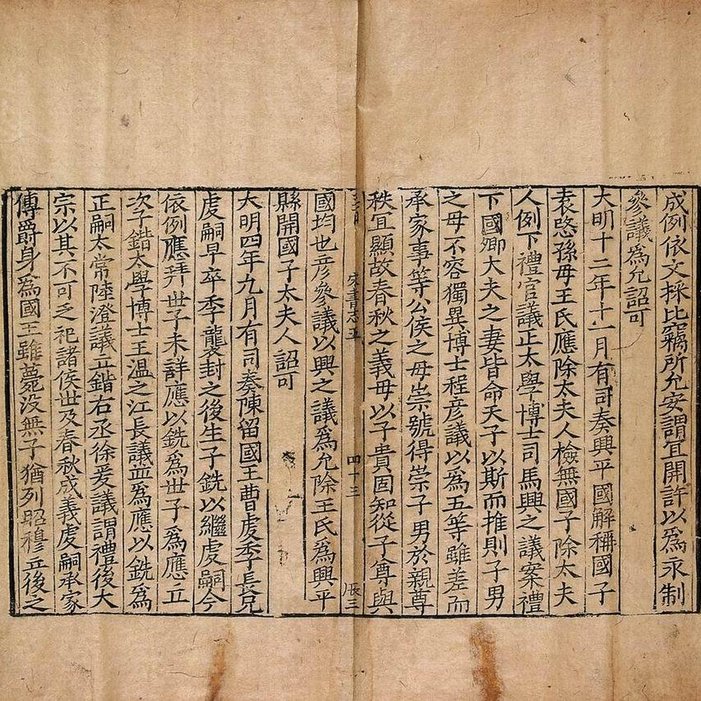 成例依文採比竊所允安謂宜開許以爲永制
參議爲允詔可
大明十二年十一月有司奏興平國解稱國子
袁愍孫母王氏應除太夫人檢無國子除太夫
人例下禮官議正太學博士司馬興之議案禮
下國卿大夫之妻皆命天子以斯而推則子男
之母不容獨異博士程彦議以爲五等雖差而
承家事等公侯之母崇號得崇子男於親尊
秩宜顯故春秋之義母以子貴固知從子尊與
國均也彦參議以興之議爲允除王氏爲興平
縣開國子太夫人詔可
宋書志五
四十三
大明四年九月有司奏陳留國王曹虔季長兄
虔嗣早卒季襲封之後生子銑以繼虔嗣今
依例應拜世子未詳應以銑爲世子爲應立
次子鍇太學博士王温之江長議並爲應以銑爲
正嗣太常陸澄議立鍇右丞徐爰議謂禮後大
宗以其不可乏祀諸侯世及春秋成義虔嗣承家
傳爵身爲國王雖薨没無子猶列昭穆立後之